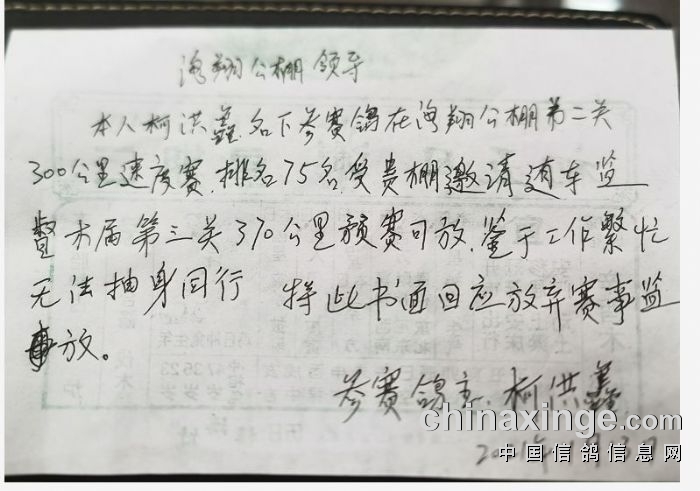 海翔公棚领导
本人柯洪鑫,名下参赛鸽在海翔公棚第二关
300公里速度赛,排名75名,受贵棚邀请随车监
督本届第三关370公里预赛司放,鉴于工作繁忙
无法抽身同行 特此书面回应放弃赛事监
放。
参赛鸽主:柯洪鑫
chinaxinge.com
中国信鸽信息网